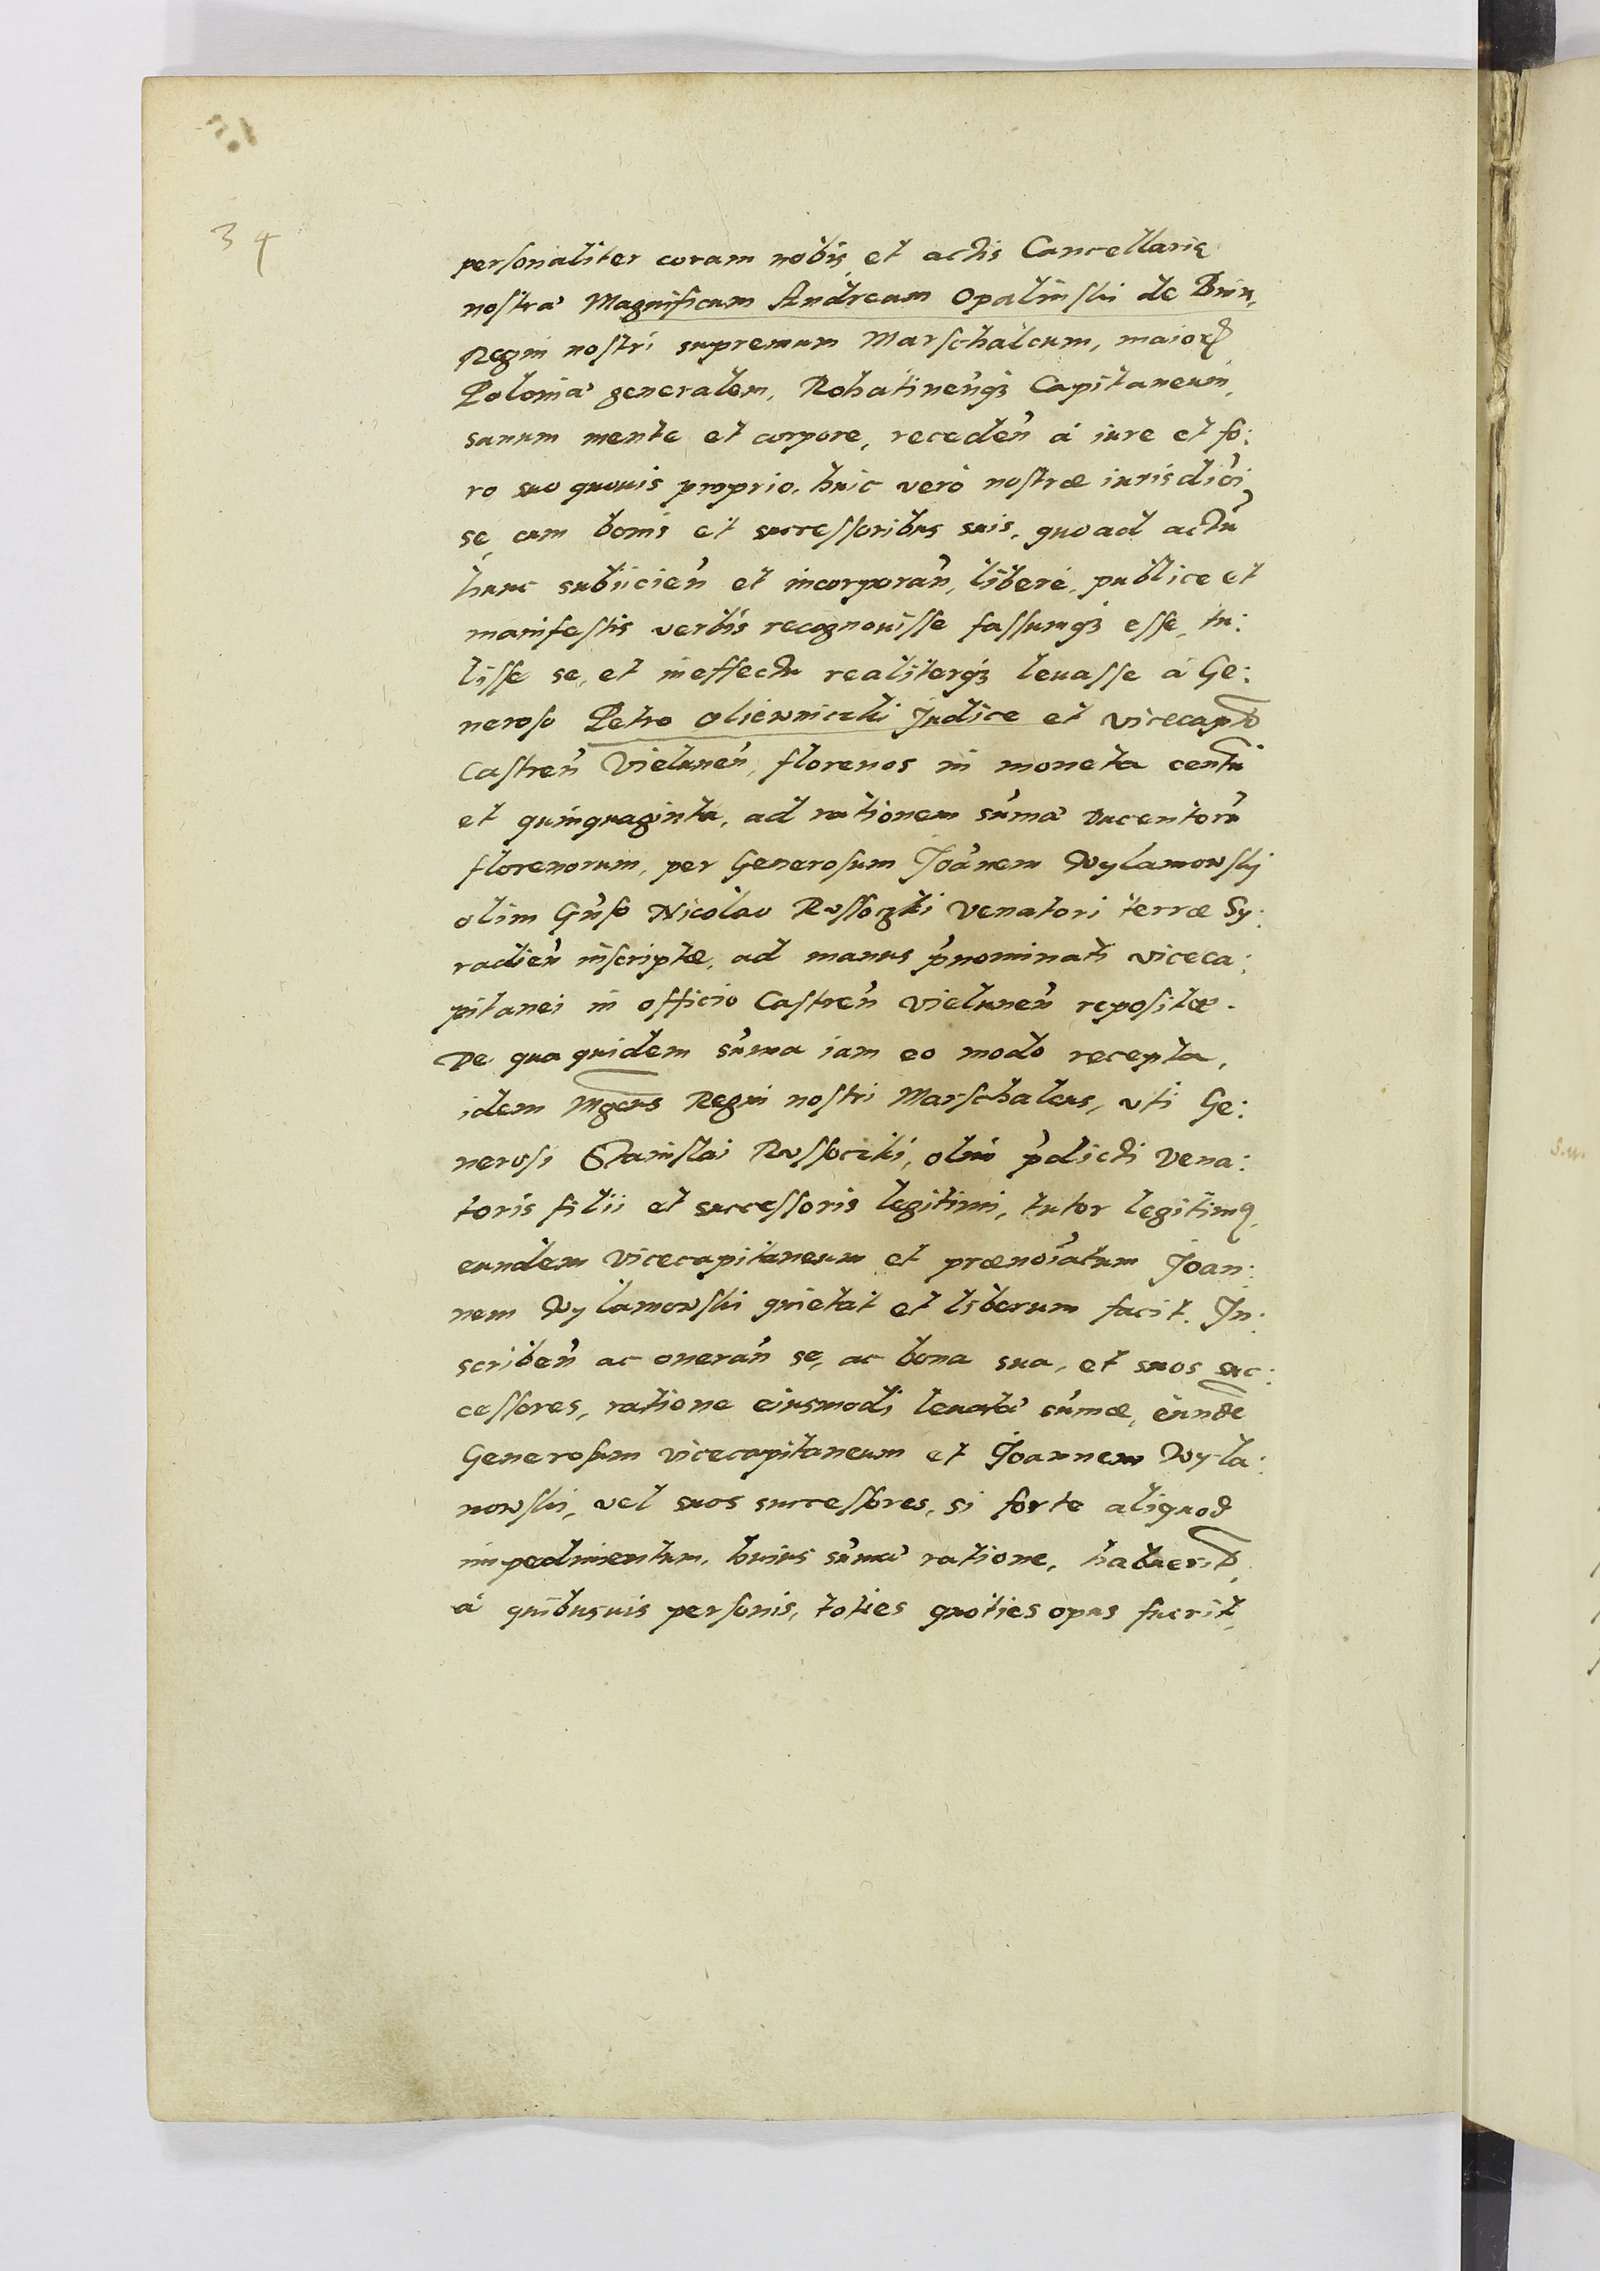 34
personaliter coram nobis et actis Cancellarię
nostrã Magnificum Andream Opalinski de Bnin,
Regni nostri supremum Marschalcum, maioꝝ
Poloniã generalem, Rohatinenqȝ Capitaneum,
sanum mente et corpore, receden̄ à iure et fo:
ro suo quouis proprio, huic verò nostræ iurisdiōi
se, cum bonis et successoribus suis, quoad actū
hunc subiicien̄ et incorporan̄, liberè, publice et
manifestis verbis recognouisse fassumqȝ esse, tu:
lisse se, et in effectu realiterqȝ leuasse à Ge:
neroso Petro Oliewnicki Judice et vicecapto
Castren̄ Vielunen̄, florenos in moneta centū
et quinquaginta, ad rationem sūmã ducentorū
florenorum, per Generosum Joānem Wylamowsky
olim Gn̄so Nicolao Russoczki venatori terræ Sy:
radien̄ inscriptæ, ad manus p̄nominati viceca:
pitanei in officio Castren̄ Vielunen̄ repositæ.
De qua quidem sūma iam eo modo recepta,
idem Mgcus Regni nostri Marschalcus, vti Ge:
nerosi Stanislai Russoczki, olim p̄dicti Vena:
toris filii et successoris legitimi, tutor legitimꝰ,
eundem vicecapitaneum et prænoīatum Joan:
nem Wylamowski quietat et liberum facit. In:
scriben̄ ac oneran̄ se, ac bona sua, et suos suc:
cessores, ratione eiusmodi leuatã sūmæ, eunde
Generosum vicecapitaneum et Joannem Wyla:
mowski, vel suos successores, si forte aliquod
impedimentum, huius sūmã ratione, habuerit,
à quibusuis personis, toties quoties opus fuerit,